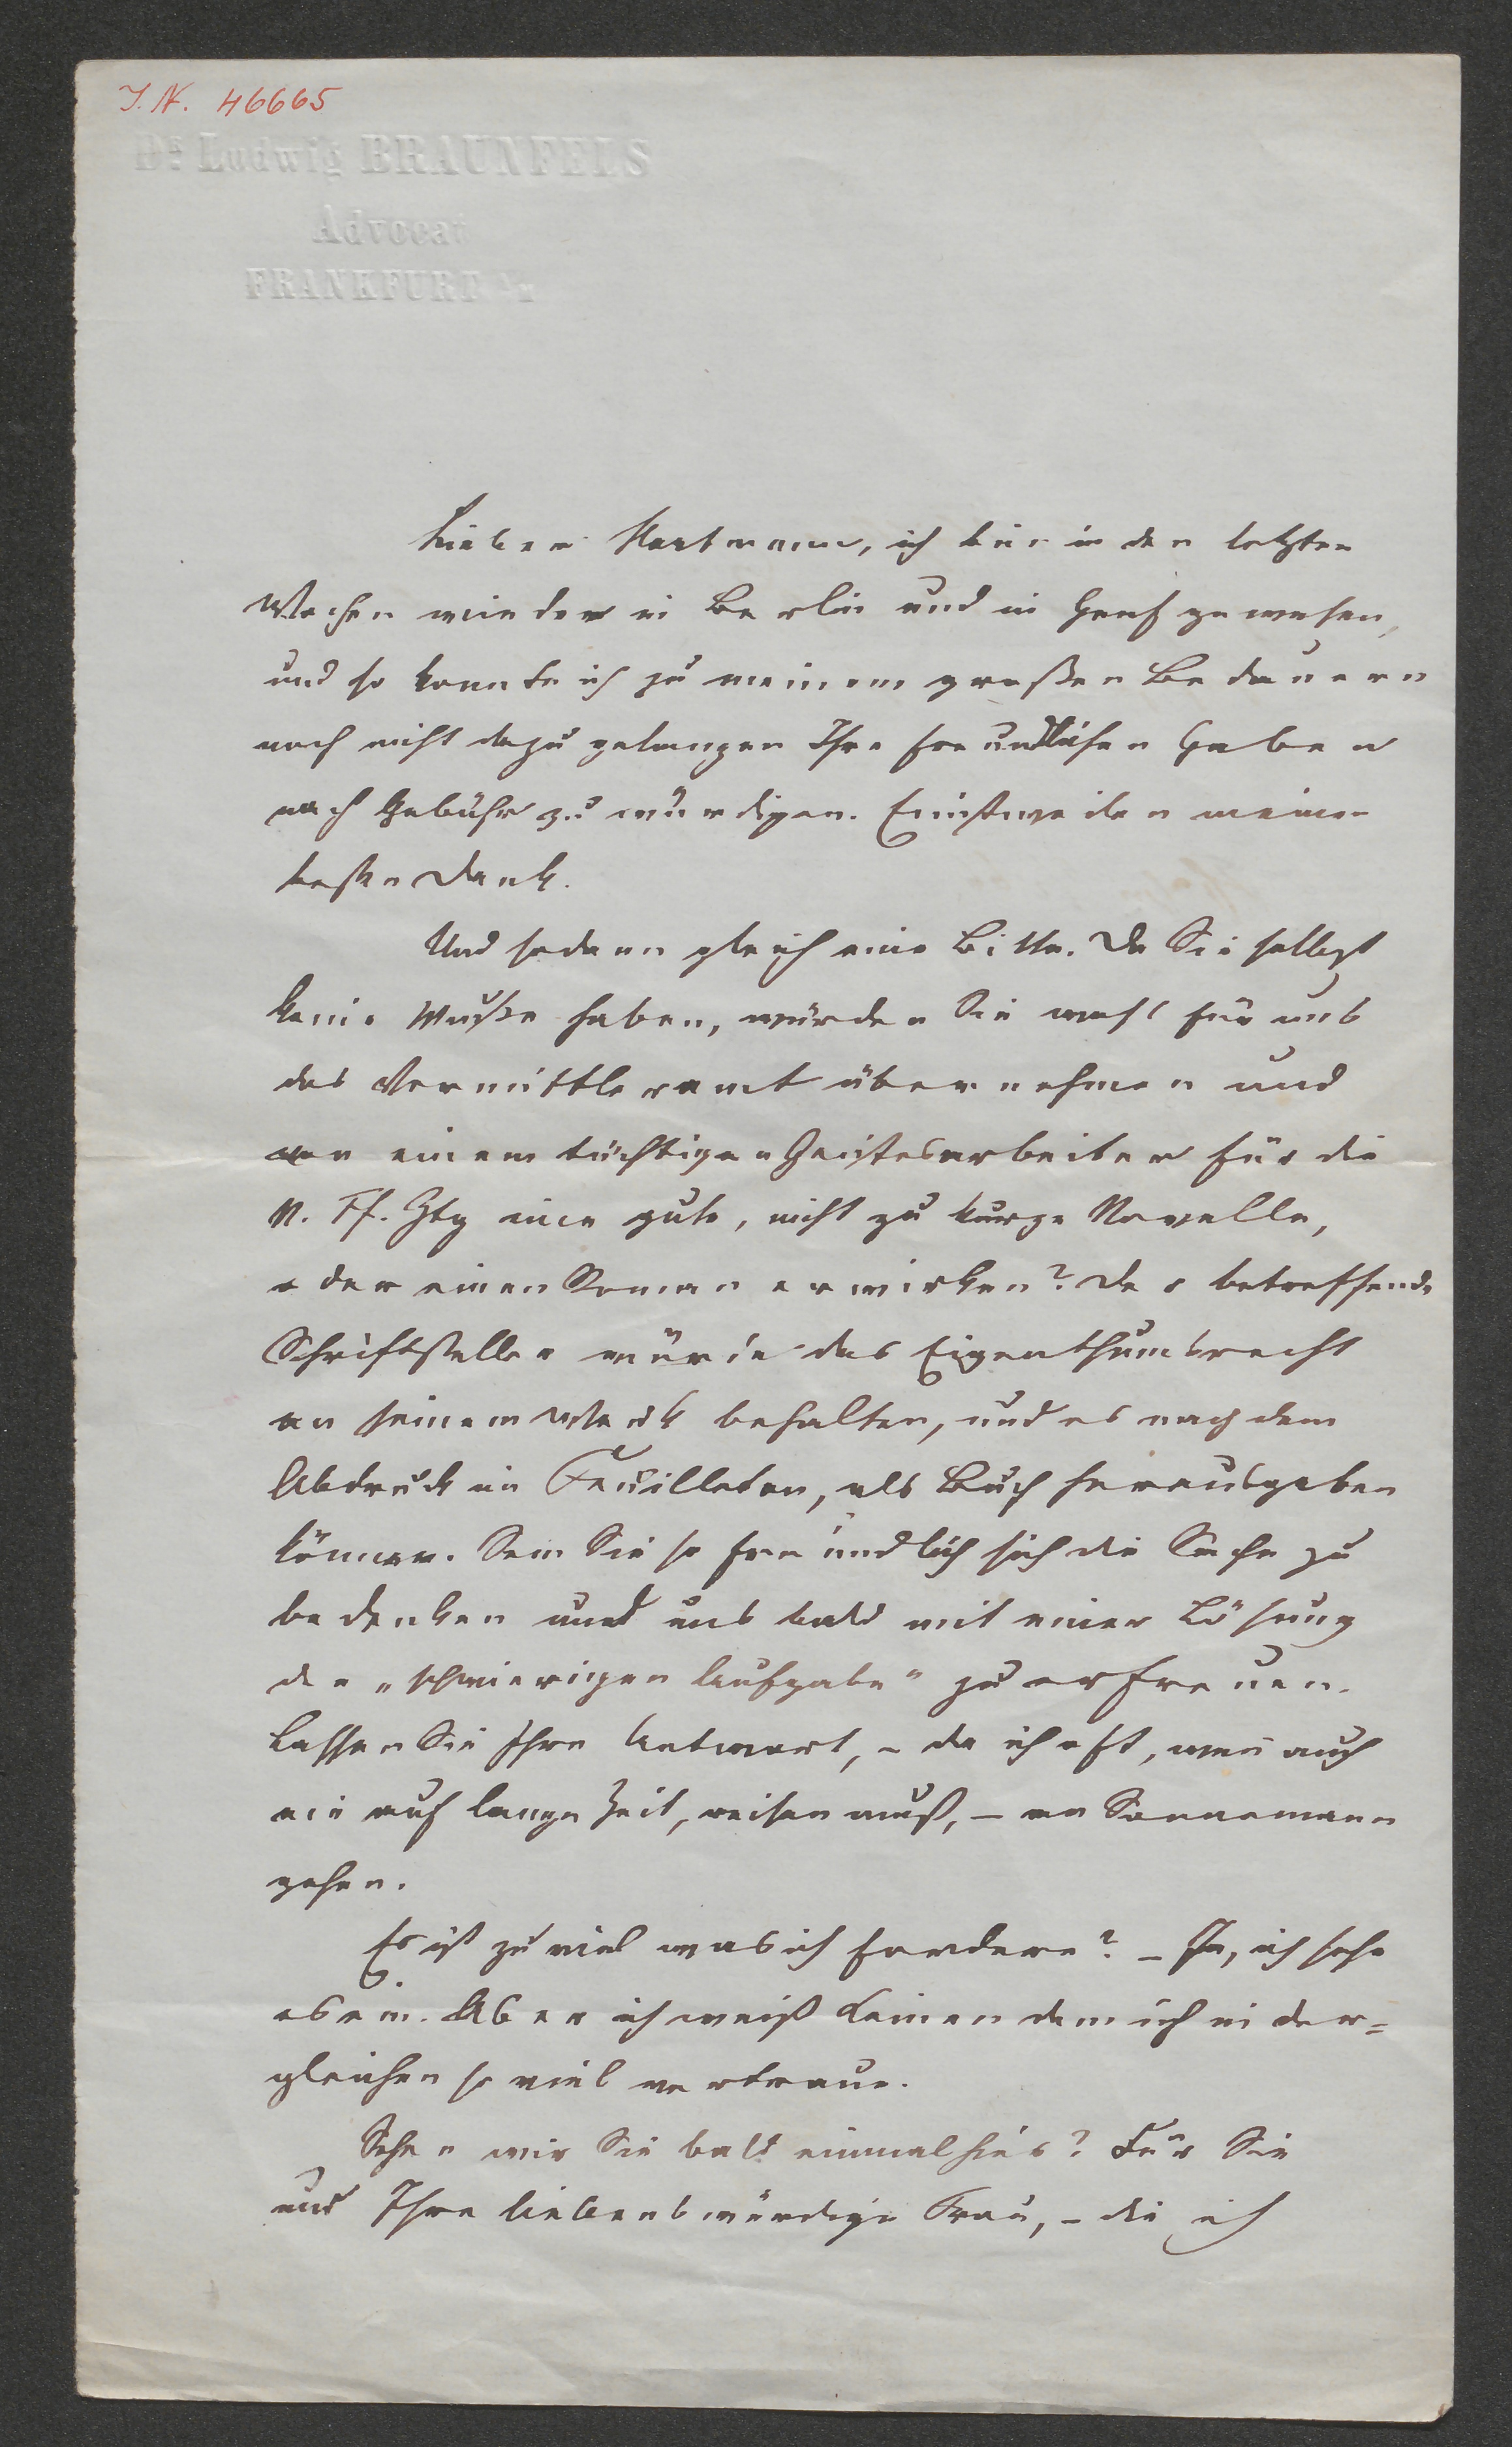 J. N. 46665
Dr. Ludwig BRAUNFELS
Advocat
FRANKFURT a/M
Lieber Hartmann, ich bin in den letzten
Wochen wieder in Berlin und in Genf gewesen,
und so konnte ich zu meinem großen Bedauern
noch nicht dazu gelangen Ihre freundlichen Gaben
nach Gebühr zu würdigen. Einstweilen meinen
besten Dank.
Und sodann gleich eine Bitte. Da Sie selbst
keine Muße haben, würden Sie wohl für uns
das Vermittleramt übernehmen und
von einem tüchtigen Geistesarbeiter für die
N. Ff. Ztg eine gute, nicht zu kurze Novelle,
oder einen Roman erwirken? Der betreffende
Schriftsteller würde das Eigenthumsrecht
an seinem Werk behalten, und es nach dem
Abdruck im Feuilleton, als Buch herausgeben
können. Sein Sie so freundlich sich die Sache zu
bedenken und uns bald mit einer Lösung
der „schwierigen Aufgabe“ zu erfreuen.
Lassen Sie Ihre Antwort, – da ich oft, wenn auch
nie auf lange Zeit, reisen muß, – an Sonnemann
gehen.
Es ist zu viel was ich fordere? – Ja, ich sehe
es ein. Aber ich weiß keinen dem ich in der=
gleichen so viel vertraue.
Sehen wir Sie bald einmal hier? Für Sie
und Ihre liebenswürdige Frau, – die ich